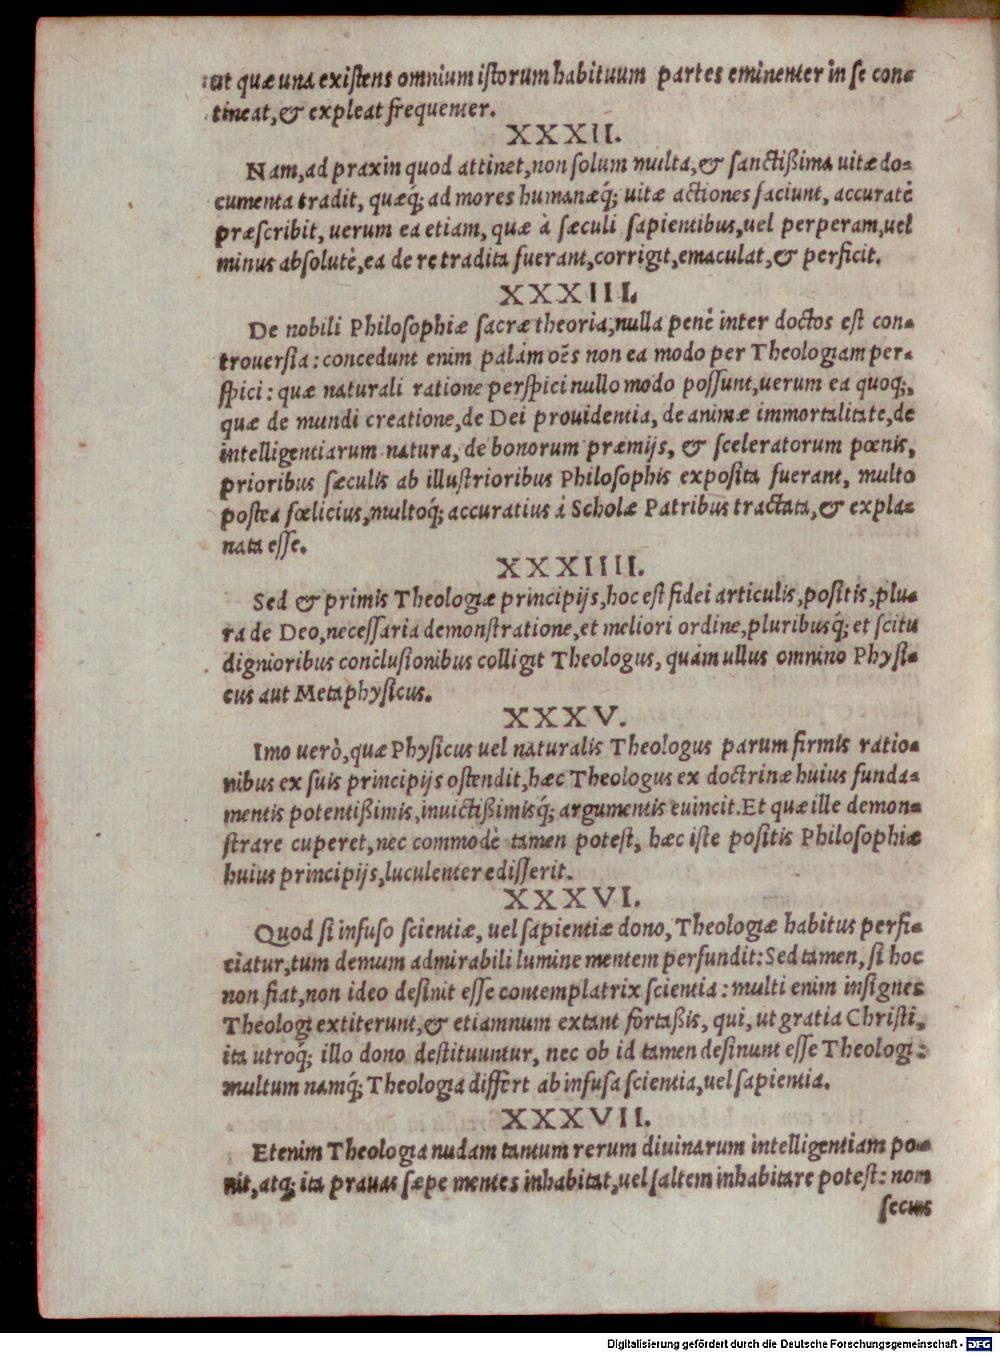 ut quæ una existens omnium istorum habituum partes eminenter in se con-
tineat, & expleat frequenter.
XXXII.
Nam, ad praxin quod attinet, non solum multa, & sanctißima uitæ do-
cumenta tradit, quæq́; ad mores humanæq́; uitæ actiones faciunt, accuratè
præscribit, uerum ea etiam, quæ à sæculi sapientibus, uel perperam, uel
minus absolutè, ea de re tradita fuerant, corrigit, emaculat, & perficit.
XXXIII.
De nobili Philosophiæ sacræ theoria, nulla penè inter doctos est con-
trouersia: concedunt enim palàm oẽs non ea modo per Theologiam per-
spici: quæ naturali ratione perspici nullo modo possunt, uerum ea quoq;,
quæ de mundi creatione, de Dei prouidentia, de animæ immortalitate, de
intelligentiarum natura, de bonorum præmijs, & sceleratorum pœnis,
prioribus sæculis ab illustrioribus Philosophis exposita fuerant, multo
postea fœlicius, multoq́; accuratius à Scholæ Patribus tractata, & expla-
nata esse.
XXXIIII.
Sed & primis Theologiæ principijs, hoc est fidei articulis, positis, plu-
ra de Deo, necessaria demonstratione, et meliori ordine, pluribusq́; et scitu
dignioribus conclusionibus colligit Theologus, quàm ullus omnino Physi-
cus aut Metaphysicus.
XXXV.
Imo uerò, quæ Physicus uel naturalis Theologus parum firmis ratio-
nibus ex suis principijs ostendit, hæc Theologus ex doctrinæ huius funda-
mentis potentißimis, inuictißimisq́; argumentis euincit. Et quæ ille demon-
strare cuperet, nec commodè tamen potest, hæc iste positis Philosophiæ
huius principijs, luculenter edisserit.
XXXVI.
Quod si infuso scientiæ, uel sapientiæ dono, Theologiæ habitus perfi-
ciatur, tum demum admirabili lumine mentem perfundit: Sed tamen, si hoc
non fiat, non ideo desinit esse contemplatrix scientia: multi enim insignes
Theologi extiterunt, & etiamnum extant fortaßis, qui, ut gratia Christi,
ita utroq́; illo dono destituuntur, nec ob id tamen desinunt esse Theologi:
multum namq́; Theologia differt ab infusa scientia, uel sapientia.
XXXVII.
Etenim Theologia nudam tantum rerum diuinarum intelligentiam po-
nit, atq; ita prauas sæpe mentes inhabitat, uel saltem inhabitare potest: non
secus
Digitalisierung gefördert durch die Deutsche Forschungsgemeinschaft - DFG